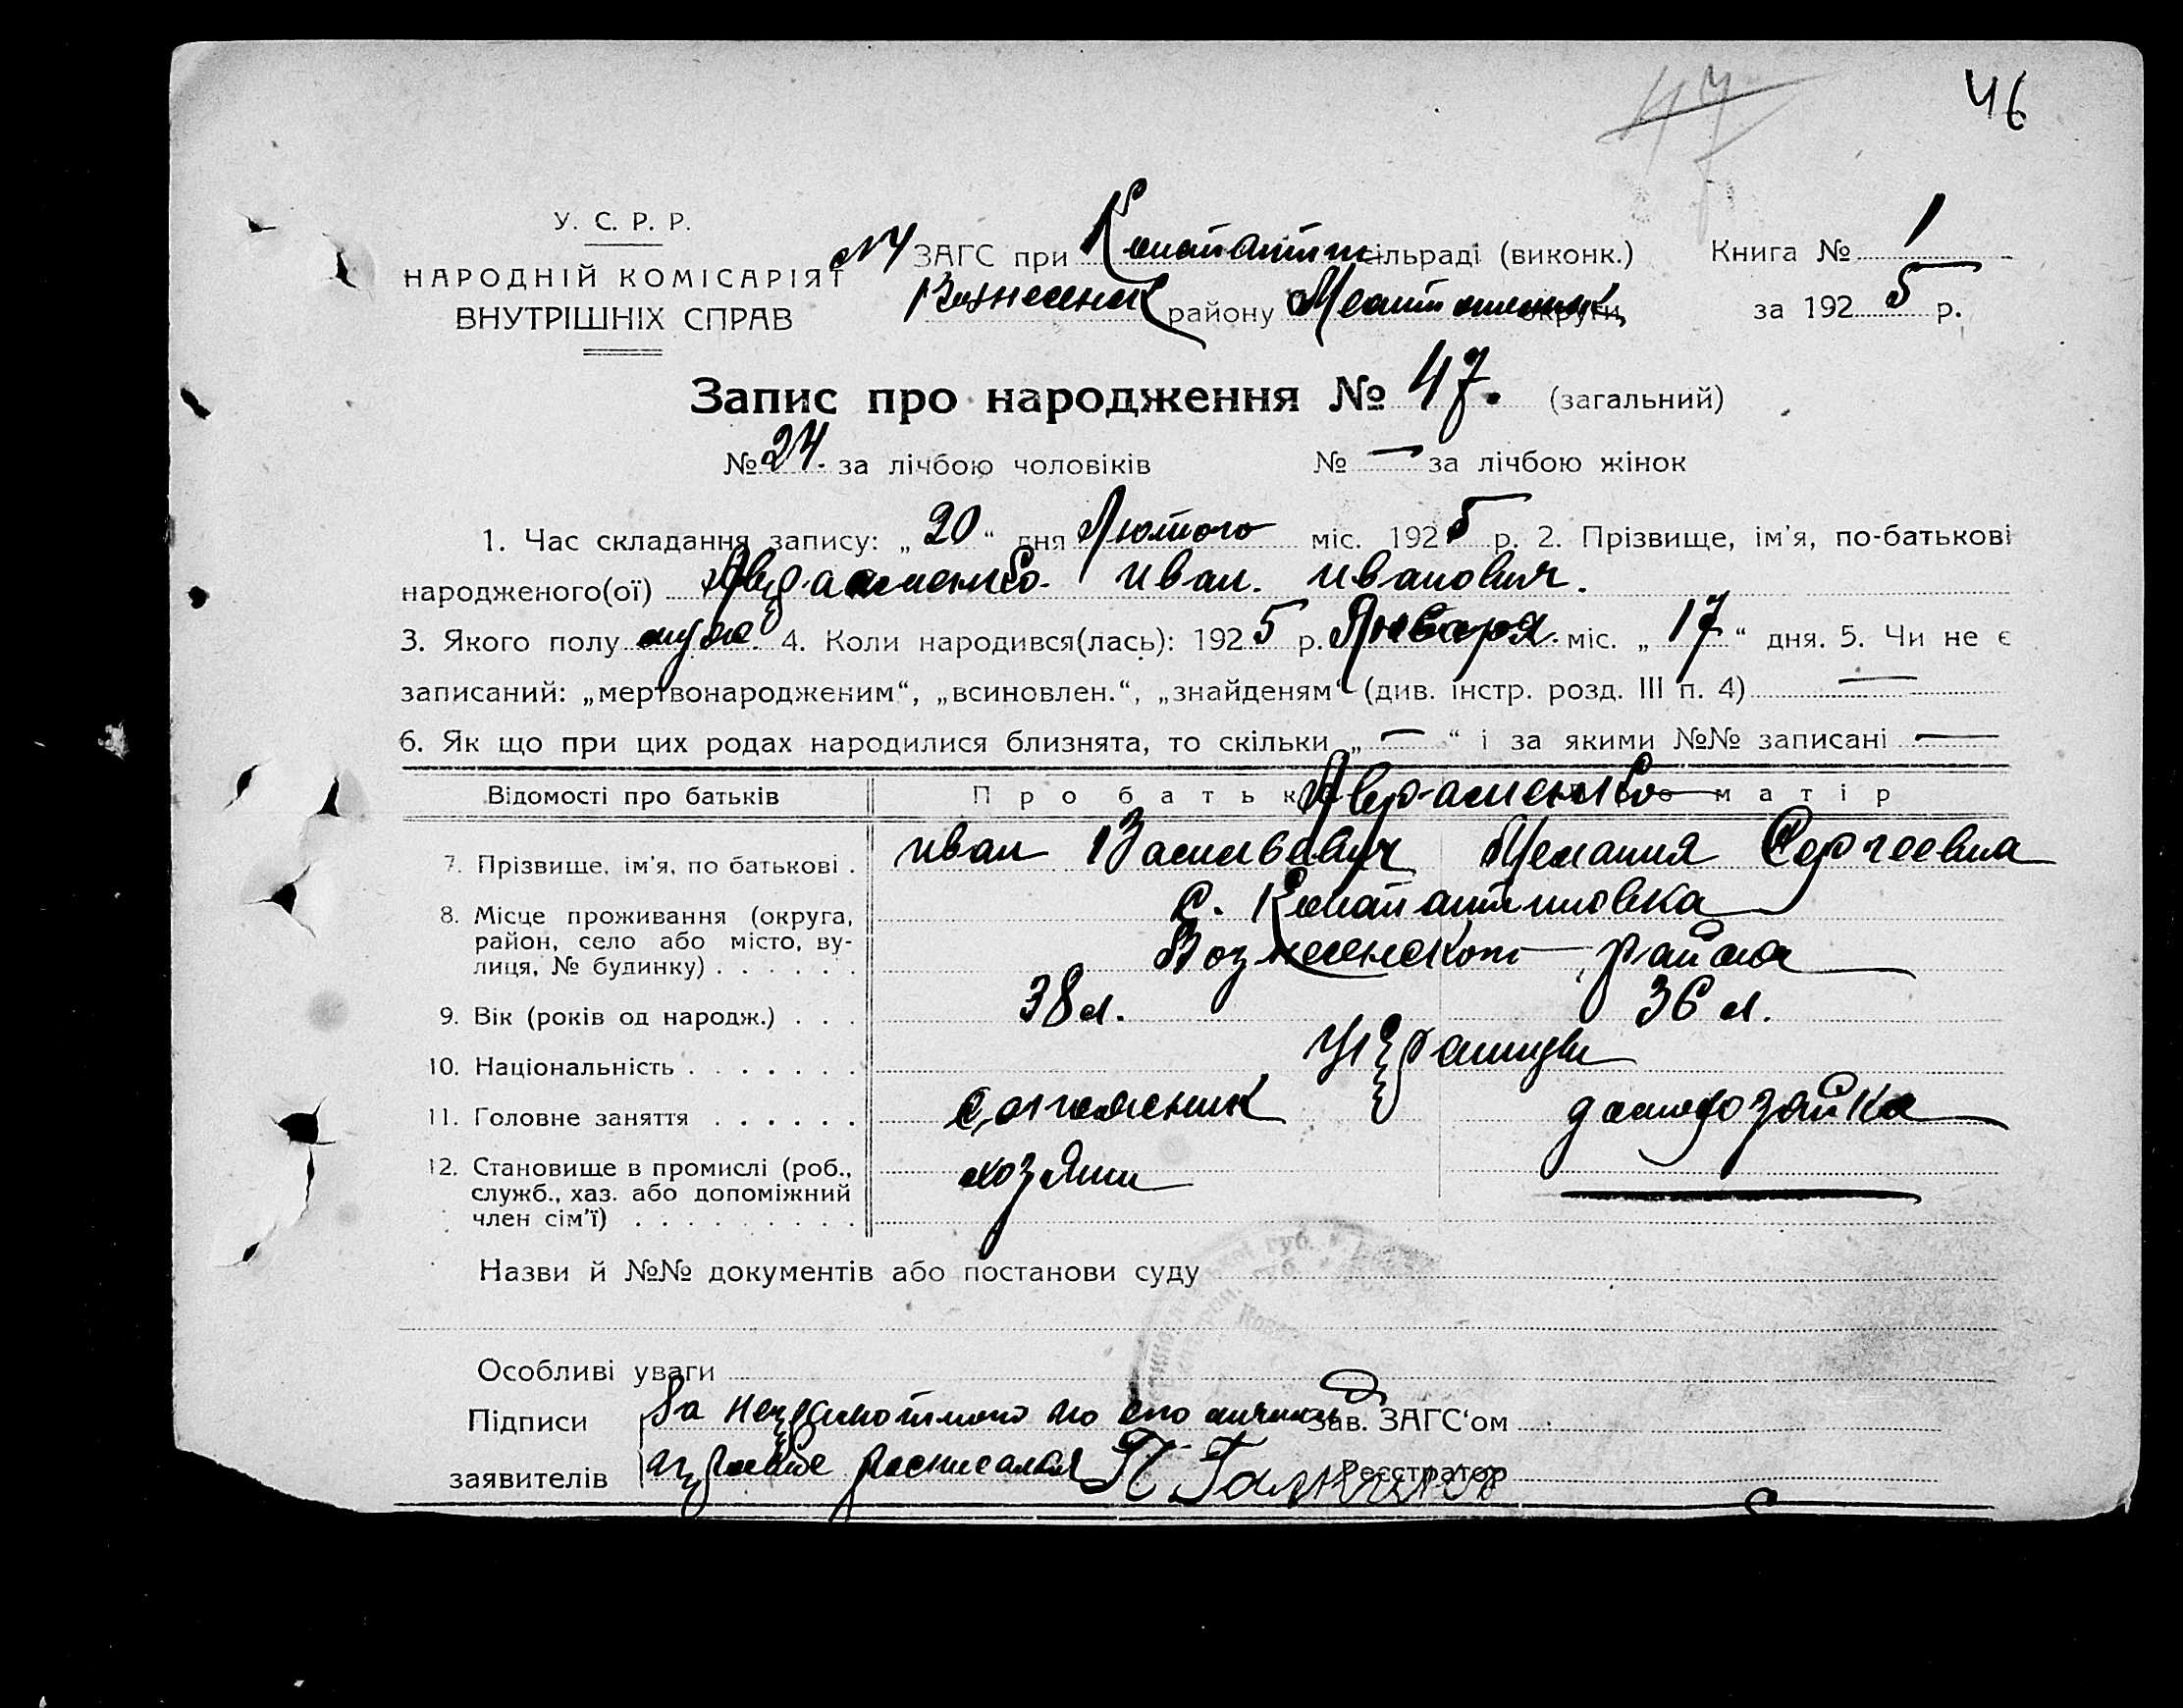 47
46
У. С. Р. Р.
НАРОДНІЙ КОМІСАРІЯТ
ВНУТРІШНІХ СПРАВ
ЗАГС при Константин сільраді (виконк.) Книга № 1
Вознесенск району округи за 1925 р.
Запис про народження № 47. (загальний)
№ 24. за лічбою чоловіків № — за лічбою жінок
1. Час складання запису: „20“ дня Лютого міс. 1925 р. 2. Прізвище, ім'я, по-батькові
народженого(ої) Авраменко Иван Иванович.
3. Якого полу муж. 4. Коли народився(лась): 1925 р. Января міс. „17“ дня. 5. Чи не є
записаний: „мертвонародженим“, „всиновлен.“, „знайденям“ (див. інстр. розд. III п. 4) —
6. Як що при цих родах народилися близнята, то скільки „—“ і за якими №№ записані —
Відомості про батьків Про батька Авраменко Про матір
7. Прізвище, ім'я, по батькові . Иван Васильевич Мелания Сергеевна
8. Місце проживання (округа, с. Константиновка
район, село або місто, ву-
лиця, № будинку) . . . . . . Вознесенского района
9. Вік (років од народж.) . . . 38 л. 36 л.
10. Національність . . . . . . . Украинцы
11. Головне заняття . . . . . . домохозяйка
12. Становище в промислі (роб., хозяин
служб., хаз. або допоміжний
член сім'ї) . . . . . . . . .
Назви й №№ документів або постанови суду
Особливі уваги
Підписи За неграмотного по его личной зав. ЗАГС'ом
заявителів просьбе расписался Реєстратор